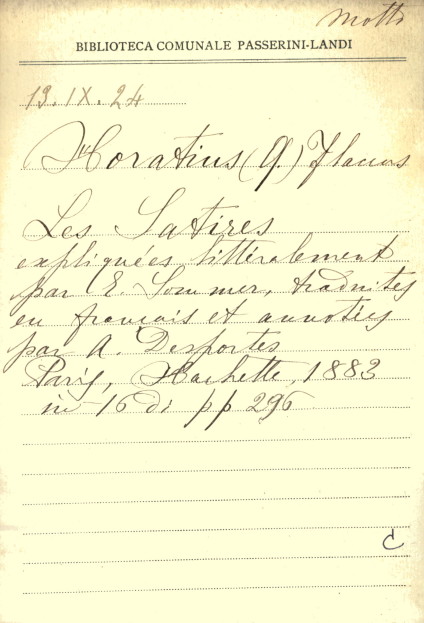 Motti
BIBLIOTECA COMUNALE PASSERINI-LANDI
13.IX.24
Horatius (Q.) Flaccus
Les Satires
expliquées littéralement
par E. Sommer, traduites
en français et annotées
par A. Desportes
Paris, Hachette, 1883
in 16 di pp 296
C